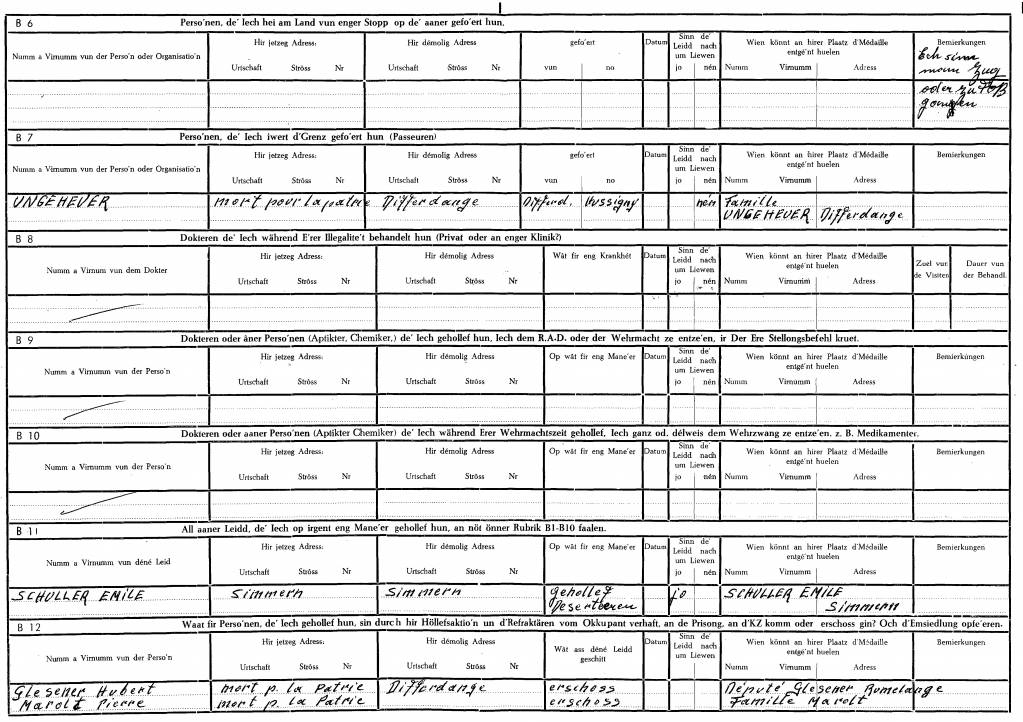 B 6 Perso'nen, de' Iech hei am Land vun enger Stopp op de' aaner gefo'ert hun.
Numm a Virnumm vun der Perso'n oder Organisatio'n
Hir jetzeg Adress:
Urtschaft Ströss Nr
Hir démolig Adress
Urtschaft Ströss Nr
gefo'ert
vun no
Datum
Sinn de'
Leidd nach
um Liewen
jo nén
Wien könnt an hirer Plaatz d'Médaille
entgé'nt huelen
Numm Virnumm Adress
Bemierkungen
Ech sinn
mam Zug
oder zu Foß
gangen
B 7 Perso'nen, de' Iech iwert d'Grenz gefo'ert hun (Passeuren)
Numm a Virnumm vun der Perso'n oder Organisatio'n
Hir jetzeg Adress:
Urtschaft Ströss Nr
Hir démolig Adress
Urtschaft Ströss Nr
gefo'ert
vun no
Datum
Sinn de'
Leidd nach
um Liewen
jo nén
Wien könnt an hirer Plaatz d'Médaille
entgé'nt huelen
Numm Virnumm Adress
Bemierkungen
UNGEHEUER mort pour la patrie Differdange Differd. Hussigny nen Famille
UNGEHEUER Differdange
B 8 Dokteren de' Iech während E'rer Illegalite't behandelt hun (Privat oder an enger Klinik?)
Numm a Virnum vun dem Dokter
Hir jetzeg Adress:
Urtschaft Ströss Nr
Hir démolig Adress
Urtschaft Ströss Nr
Wât fir eng Krankhét
Datum
Sinn de'
Leidd nach
um Liewen
jo nén
Wien könnt an hirer Plaatz d'Médaille
entgé'nt huelen
Numm Virnumm Adress
Zuel vun
de Visiten
Dauer vun
der Behandl.
B 9 Dokteren oder âner Perso'nen (Aptikter, Chemiker,) de' Iech gehollef hun, Iech dem R.A-D. oder der Wehrmacht ze entze'en, ir Der Ere Stellongsbefehl kruet.
Numm a Virnumm vun der Perso'n
Hir jetzeg Adress:
Urtschaft Ströss Nr
Hir démolig Adress
Urtschaft Ströss Nr
Op wât fir eng Mane'er
Datum
Sinn de'
Leidd nach
um Liewen
jo nén
Wien könnt an hirer Plaatz d'Médaille
entgé'nt huelen
Numm Virnumm Adress
Bemierkungen
B 10 Dokteren oder aaner Perso'nen (Aptikter Chemiker) de' Iech während Erer Wehrmachtszeit gehollef, Iech ganz od. délweis dem Wehrzwang ze entze'en. z. B. Medikamenter.
Numm a Virnumm vun der Perso'n
Hir jetzeg Adress:
Urtschaft Ströss Nr
Hir démolig Adress
Urtschaft Ströss Nr
Op wât fir eng Mane'er
Datum
Sinn de'
Leidd nach
um Liewen
jo nén
Wien könnt an hirer Plaatz d'Médaille
entgé'nt huelen
Numm Virnumm Adress
Bemierkungen
B 11 All aaner Leidd, de' Iech op irgent eng Mane'er gehollef hun, an nöt önner Rubrik B1-B10 faalen.
Numm a Virnumm vun déné Leid
Hir jetzeg Adress:
Urtschaft Ströss Nr
Hir démolig Adress
Urtschaft Ströss Nr
Op wât fir eng Mane'er
Datum
Sinn de'
Leidd nach
um Liewen
jo nén
Wien könnt an hirer Plaatz d'Médaille
entgé'nt huelen
Numm Virnumm Adress
Bemierkungen
SCHULLER EMILE Simmern Simmern gehollef jo SCHULLER EMILE
Desertéeren Simmern
B 12 Waat fir Perso'nen, de' Iech gehollef hun, sin durch hir Höllefsaktio'n un d'Refraktären vom Okkupant verhaft, an de Prisong, an d'KZ komm oder erschoss gin? Och d'Emsiedlung opfe'eren.
Numm a Virnumm vun der Perso'n
Hir jetzeg Adress:
Urtschaft Ströss Nr
Hir démolig Adress
Urtschaft Ströss Nr
Wât ass déné Leidd
geschitt
Datum
Sinn de'
Leidd nach
um Liewen
Wien könnt an hirer Plaatz d'Médaille
entgé'nt huelen
Numm Virnumm Adress
Bemierkungen
Glesener Hubert mort p. la Patrie Differdange erschoss Député Glesener Rumelange
Marolt Pierre mort p. la Patrie erschoss Famille Marolt